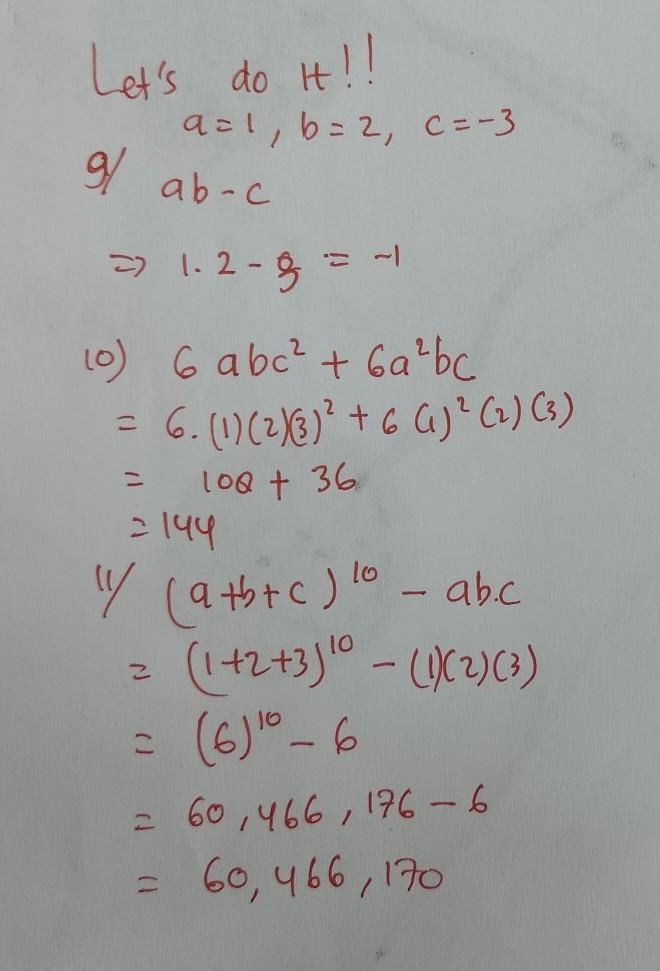 Let's do It!!
a=1, b=2, c=-3
9/ ab-c
=> 1.2-3 = -1
10) 6 abc² + 6a²bc
= 6.(1)(2)(3)² + 6 (1)² (2) (3)
= 108 + 36
= 144
11/ (a+b+c)¹⁰ - ab.c
= (1+2+3)¹⁰ - (1)(2)(3)
= (6)¹⁰ - 6
= 60,466,176 - 6
= 60,466,170